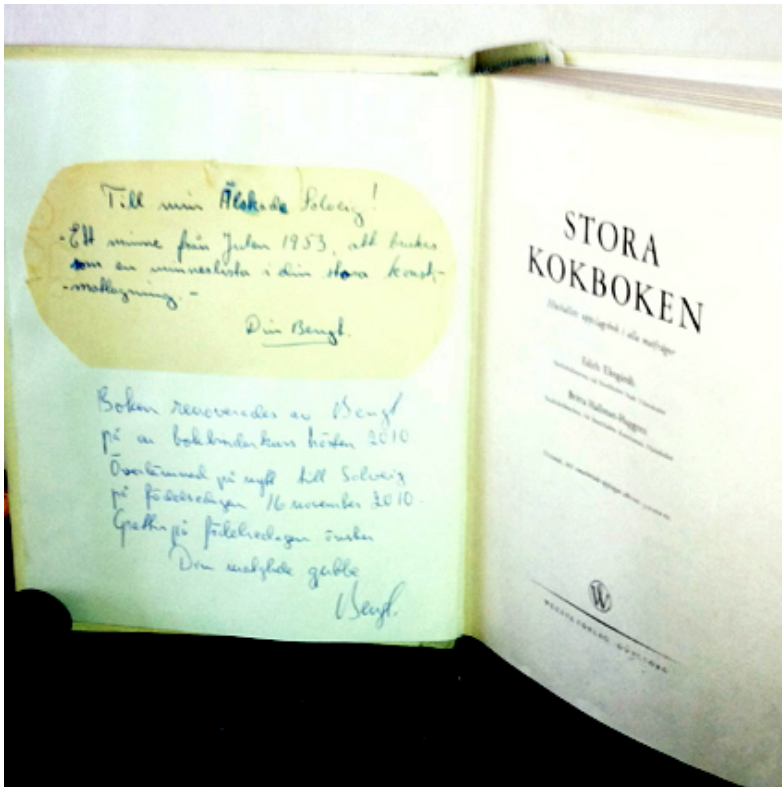 Till min Älskade Solveig!
- Ett minne från Julen 1953, att brukas
som en minneslista i din stora konst-
-matlagning. -
Din Bengt.
Boken renoverades av Bengt
på en bokbinderkurs hösten 2010
Överlämnad på nytt till Solveig
på födelsedagen 16 november 2010.
Grattis på födelsedagen önskar
Din matglade gubbe
Bengt.
STORA
KOKBOKEN
Illustrerad uppslagsbok i alla matfrågor
Edith Ekegårdh
Britta Hallman-Haggren
W
WEZÄTA FÖRLAG · GÖTEBORG